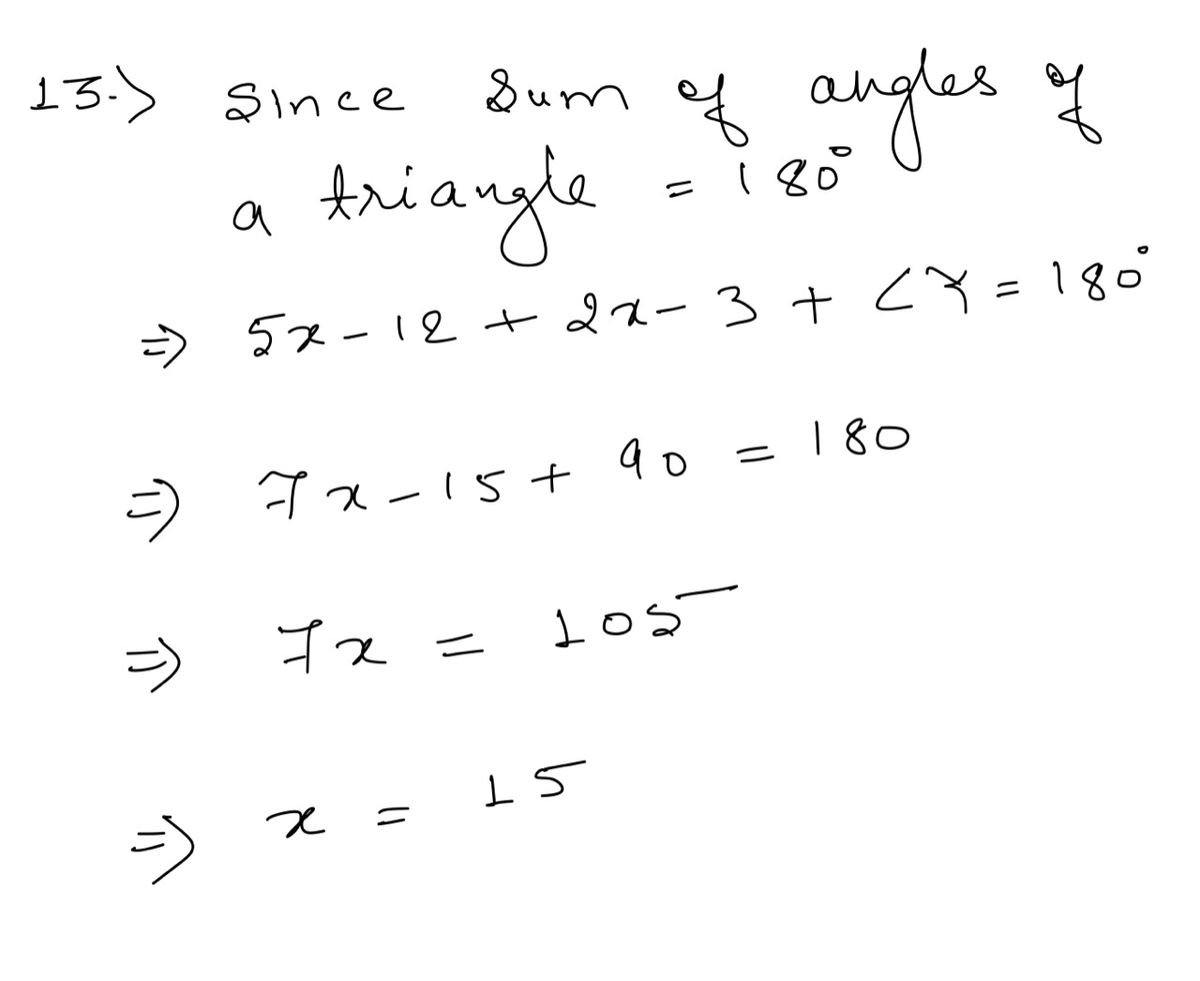 13.) Since Sum of angles of
a triangle = 180°
⇒ 5x - 12 + 2x - 3 + ∠Y = 180°
⇒ 7x - 15 + 90 = 180
⇒ 7x = 105
⇒ x = 15